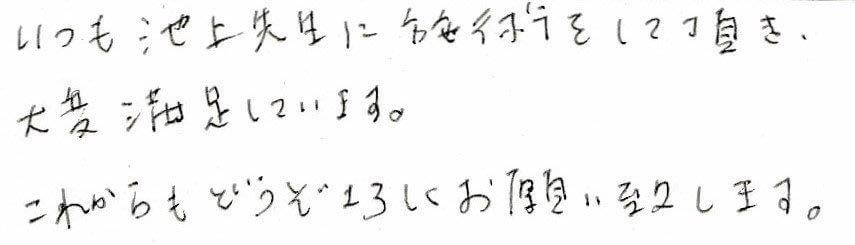 いつも池上先生に施術をして頂き、
大変満足しています。
これからもどうぞよろしくお願い致します。